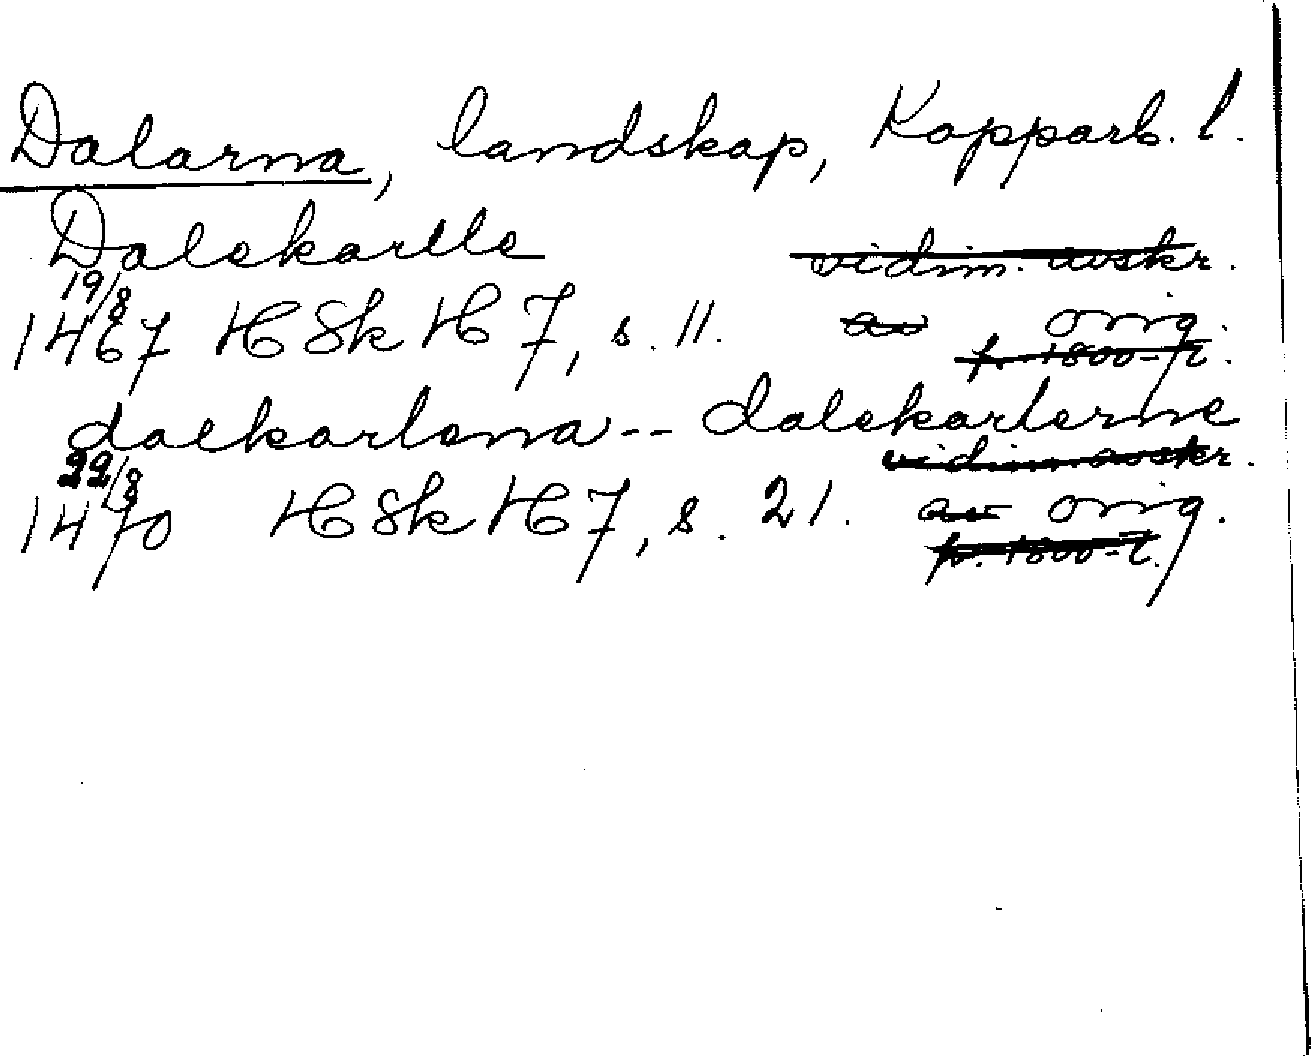 Dalarna, landskap, Kopparb. l.
Dalekarlle vidim. avskr.
19/8
1467 HSkH 7, s. 11. av orig.
fr. 1800-t.
daekarlena -- dalekarlerne
22/8 vidim. avskr.
1470 HSkH 7, s. 21. av orig.
fr. 1800-t.